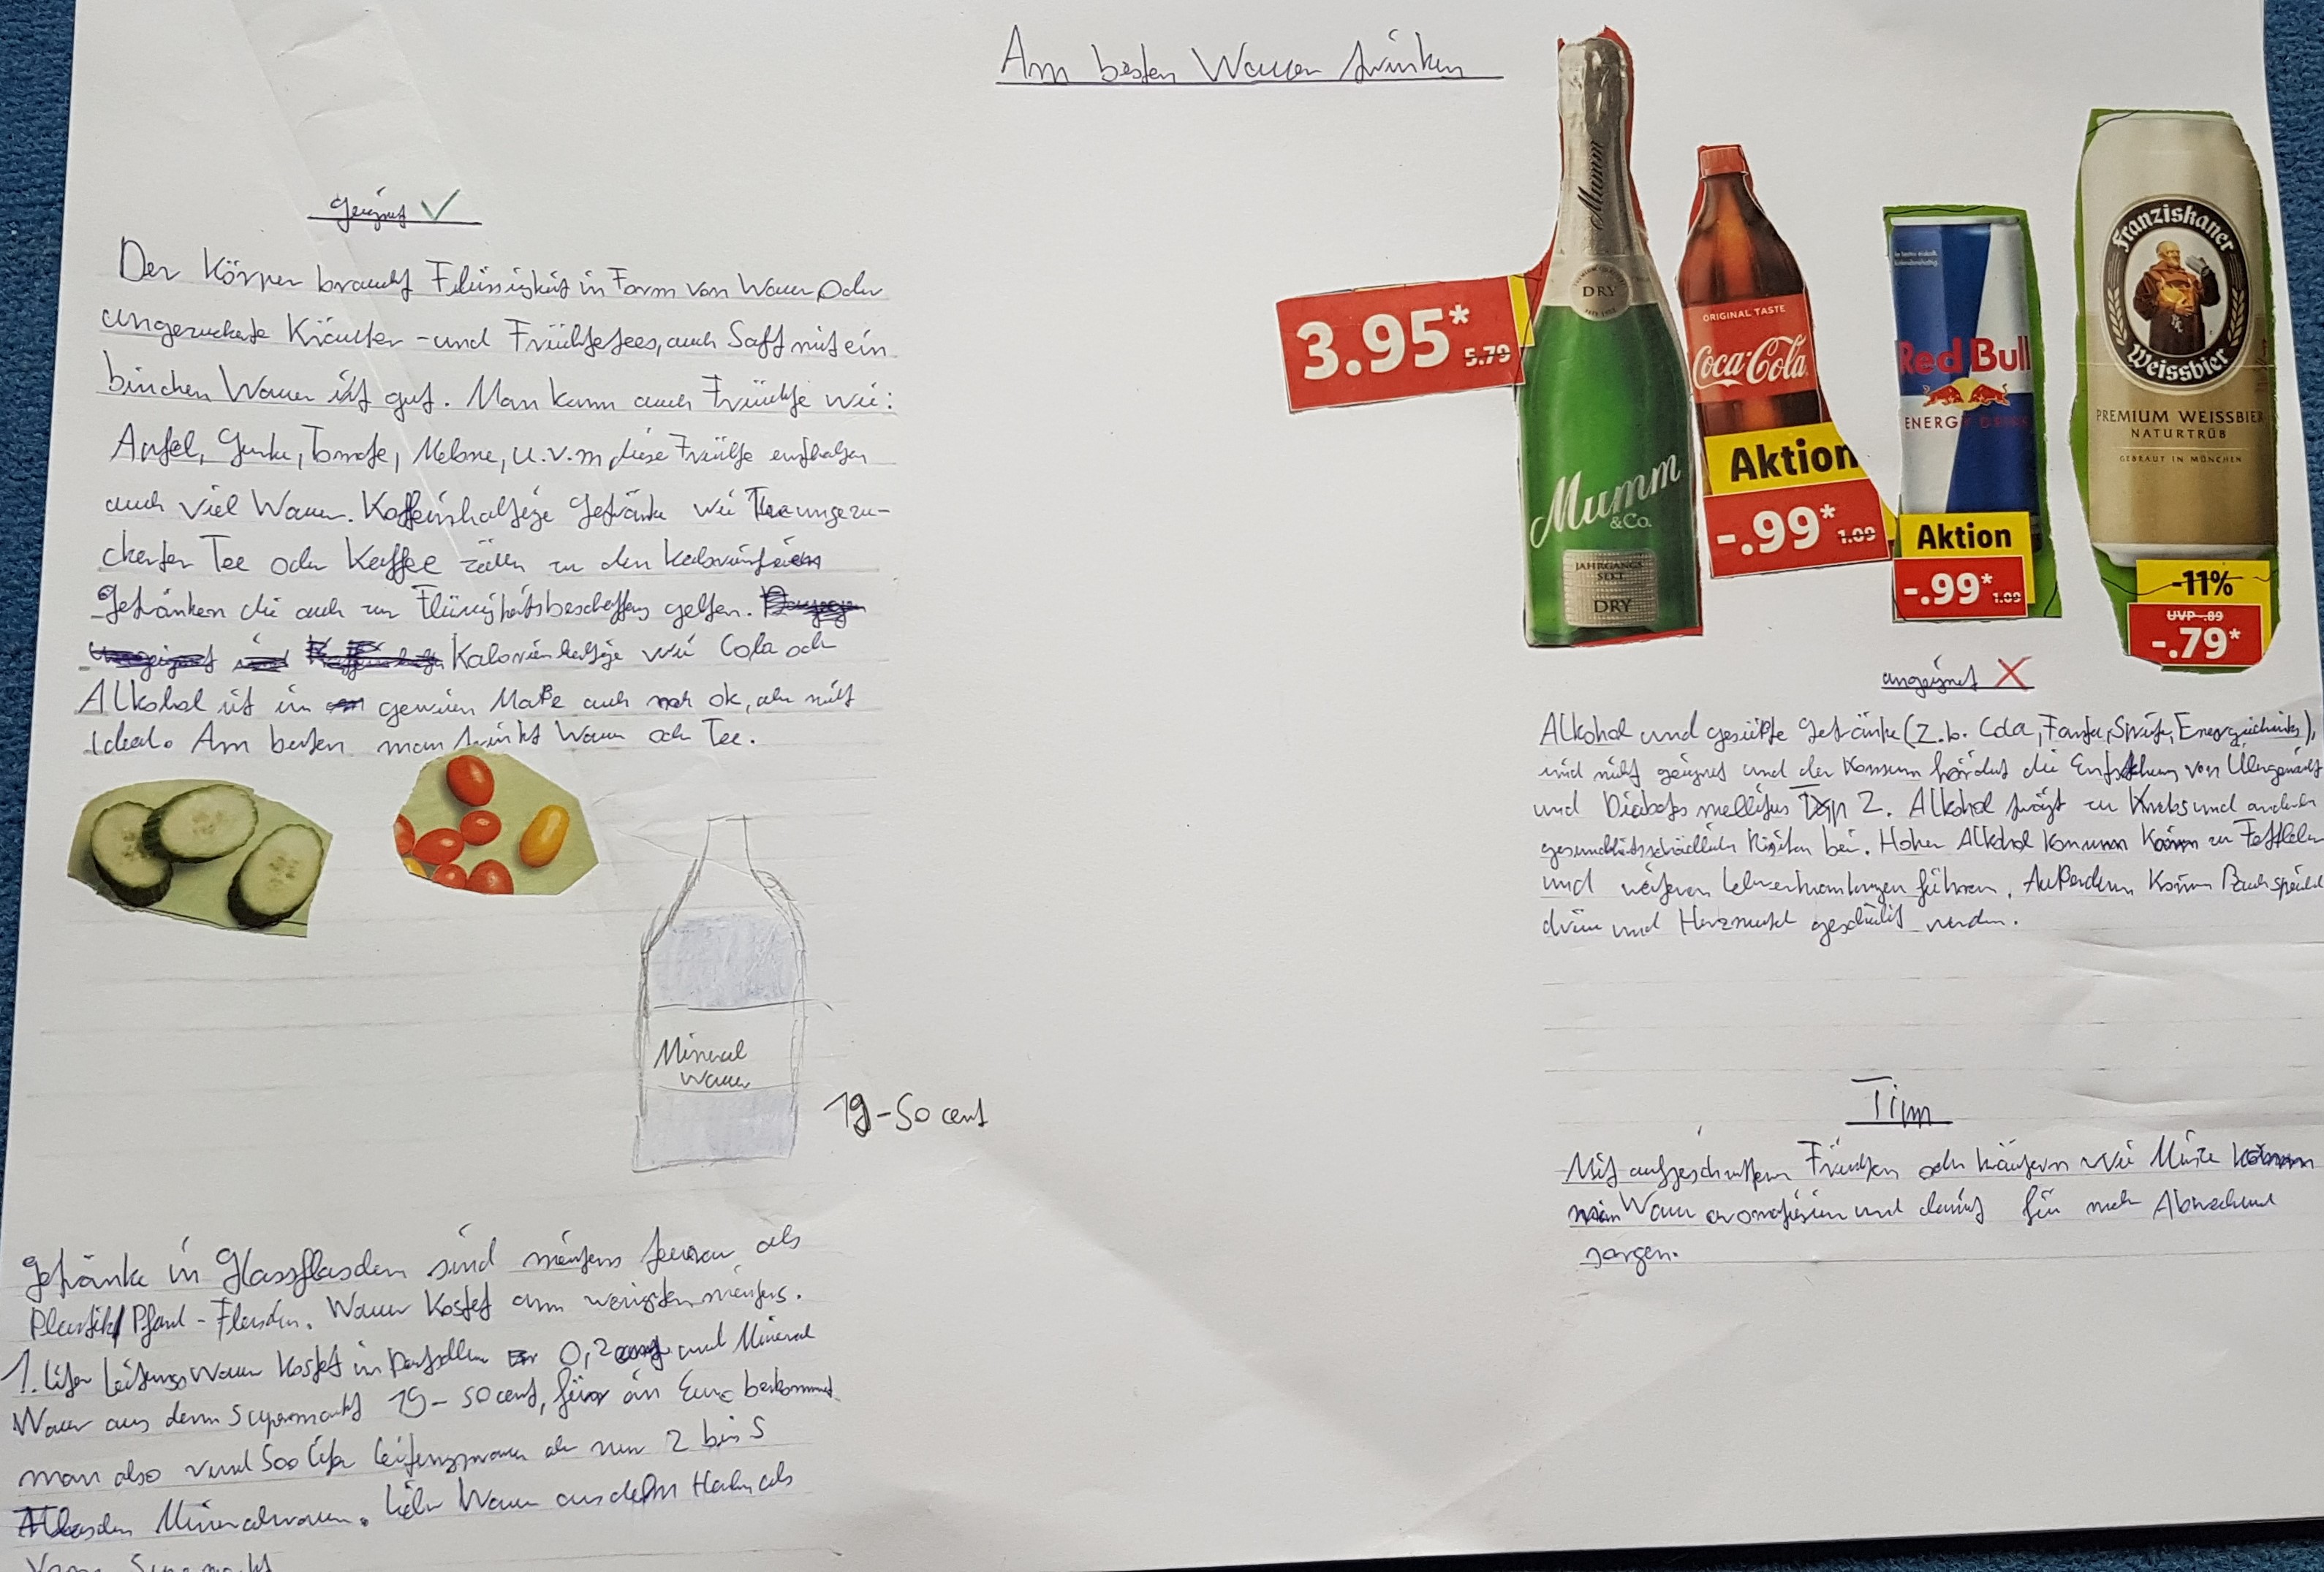 Am besten Wasser trinken
geeignet ✓
Der Körper braucht Flüssigkeit in Form von Wasser oder
ungezuckerte Kräuter-und Früchtetees, auch Saft mit ein
bisschen Wasser ist gut. Man kann auch Früchte wie:
Apfel, Gurke, Tomate, Melone, u.v.m diese Früchte enthalten
auch viel Wasser. Koffeinhaltige Getränke wie ungezu-
ckerter Tee oder Kaffee zällen zu den
Getränken die auch zur Flüssigkeitsbeschaffung gelten.
Kalorienhaltige wie Cola och
Alkohol ist in gewissen Maße auch noch ok, aber nicht
ideal. Am besten man trinkt Wasser och Tee.
Mineral
Wasser
19-50 cent
Getränke in Glassflaschen sind meistens teurer als
Plastik/Pfand-Flaschen. Wasser Kostet am wenigsten meistens.
1. Liter Leitungs Wasser kostet in 0,2 und Mineral
Wasser aus dem Supermarkt 19-50 cent, für ein Euro bekommt
man also rund 500 Liter Leitungswasser ab nur 2 bis 5
Mineralwasser. Lieber Wasser aus dem Hahn als
Vom Supermarkt
3.95* 5.79
Mumm
DRY
Mumm
&Co.
JAHRGANGS
SEKT
DRY
ORIGINAL TASTE
Coca-Cola
Aktion
-.99* 1.09
Red Bull
ENERGY DRINK
Aktion
-.99* 1.09
Franziskaner
Weissbier
PREMIUM WEISSBIER
NATURTRÜB
GEBRAUT IN MÜNCHEN
-11%
UVP -.89
-.79*
ungeeignet X
Alkohol und gesüßte Getränke (z.b. Cola, Fanta, Sprite, Energydrinks),
sind nicht geeignet und der Konsum fördert die Entstehung von Übergewicht
und Diabetes mellitus Typ 2. Alkohol trägt zu Krebs und anderen
gesundheitsschädlich Risiken bei. Hoher Alkohol Konsum kann zu Fettleber
und weiteren Lebererkrankungen führen. Außerdem können Bauchspeichel
drüse und Herzmuskel geschädigt werden.
Tipp
Mit aufgeschnittenen Früchten oder Kräutern wie Minze
Wasser aromatisieren und damit für mehr Abwechslung
sorgen.